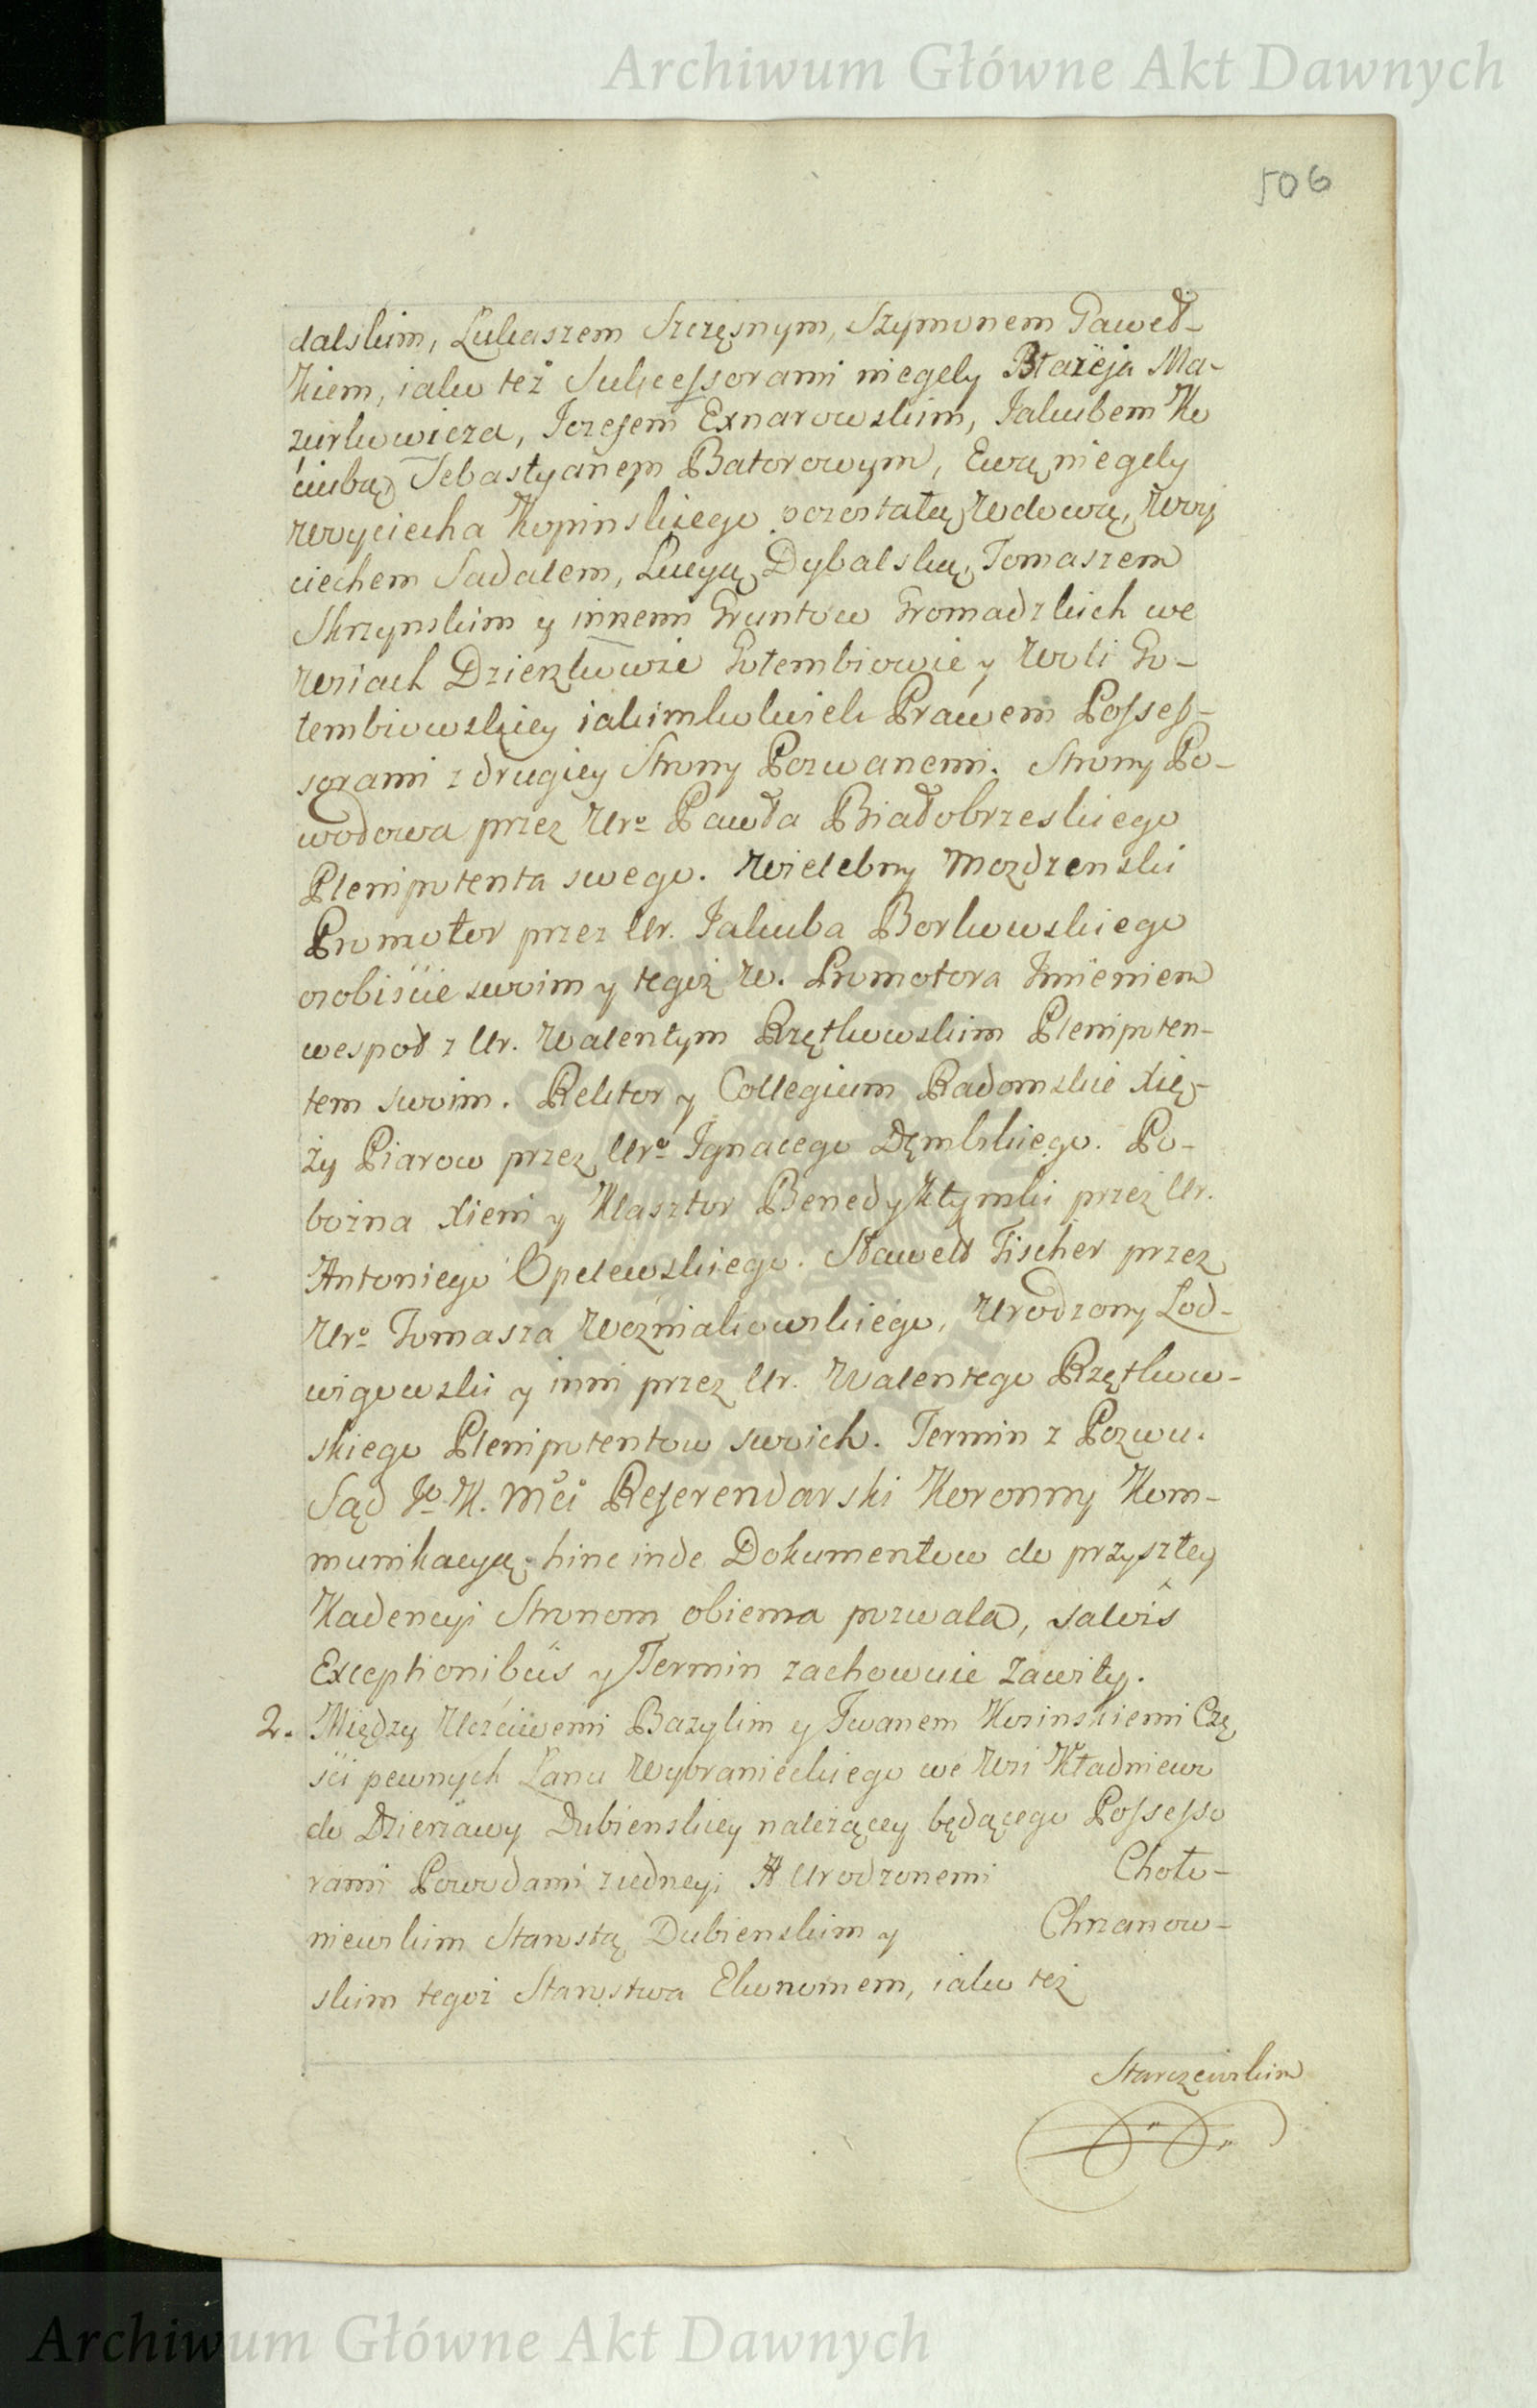 Archiwum Główne Akt Dawnych
506
dalskim, Łukaszem Szczęsnym, Szymonem Gaweł-
kiem, iako też Sukcessorami niegdy Błażeja Ma-
zurkowicza, Jozefem Exnarowskim, Jakubem Ko
ciubą, Sebastyanem Batorowym, Ewą niegdy
Woyciecha Kopinskiego pozostałą Wdową, Woy
ciechem Sadalem, Łucyą Dybalską, Tomaszem
Skrzynskim y innemi Gruntow Gromadzkich we
Wsiach Dzierzkowie Gołembiowie y Woli Go-
łembiowskiey iakimkolwiek Prawem Posses-
sorami z drugiey Strony Pozwanemi. Strony Po-
wodowa przez Uro Pawła Białobrzeskiego
Plenipotenta swego. Wielebny Mozdzenski
Promotor przez Ur. Jakuba Borkowskiego
osobiście swoim y tegoż W. Promotora Imieniem
wespoł z Ur. Walentym Rzętkowskim Plenipoten-
tem swoim. Rektor y Collegium Radomskie Xię-
ży Piarow przez Uro Ignacego Dęmbskiego. Po-
bożna Xieni y Klasztor Benedyktynski przez Ur.
Antoniego Opelewskiego. Sławetd Fischer przez
Uro Tomasza Wozniakowskiego, Urodzony Lod-
wigowski y inni przez Ur. Walentego Rzętkow-
skiego Plenipotentow swoich. Termin z Pozwu.
Sąd Jo K. Mći Referendarski Koronny Kom-
munikacyą hinc inde Dokumentow do przyszłey
Kadencyi Stronom obiema pozwala, salvis
Exceptionibus y Termin zachowuie zawity.
2. Między Uczciwemi Bazylim y Iwanem Kozinskiemi Czę
ści pewnych Łanu Wybranieckiego we Wsi Kładniewo
do Dzierżawy Dubienskiey należącey będącego Possesso
rami Powodami z iedney; A Urodzonemi Choło-
niewskim Starostą Dubienskim y Chrzanow-
skim tegoż Starostwa Ekonomem, iako też
Starczewskim
Archiwum Główne Akt Dawnych